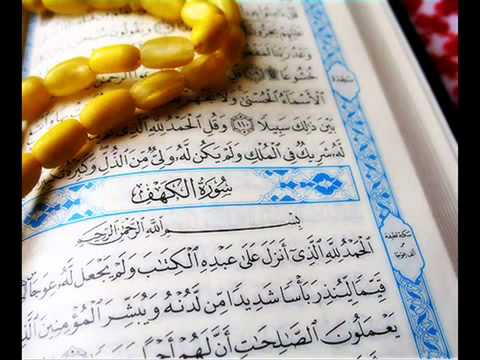 وَيَقُولُونَ
خُشُوعًا ۩ ١٠٩
ٱلْأَسْمَآءُ ٱلْحُسْنَىٰ وَلَا
بَيْنَ ذَٰلِكَ سَبِيلًا ١١٠ وَقُلِ ٱلْحَمْدُ لِلَّهِ ٱلَّذِى
لَّهُۥ شَرِيكٌ فِى ٱلْمُلْكِ وَلَمْ يَكُن لَّهُۥ وَلِىٌّ مِّنَ ٱلذُّلِّ وَكَبِّرْهُ
سُورَةُ الكَهْفِ
بِسْمِ ٱللَّهِ ٱلرَّحْمَٰنِ ٱلرَّحِيمِ
ٱلْحَمْدُ لِلَّهِ ٱلَّذِىٓ أَنزَلَ عَلَىٰ عَبْدِهِ ٱلْكِتَٰبَ وَلَمْ يَجْعَل لَّهُۥ عِوَجَا
قَيِّمًا لِّيُنذِرَ بَأْسًا شَدِيدًا مِّن لَّدُنْهُ وَيُبَشِّرَ ٱلْمُؤْمِنِينَ ٱلَّذِينَ
يَعْمَلُونَ ٱلصَّٰلِحَٰتِ أَنَّ لَهُمْ أَجْرًا
سَجدة
سكتة لطيفة